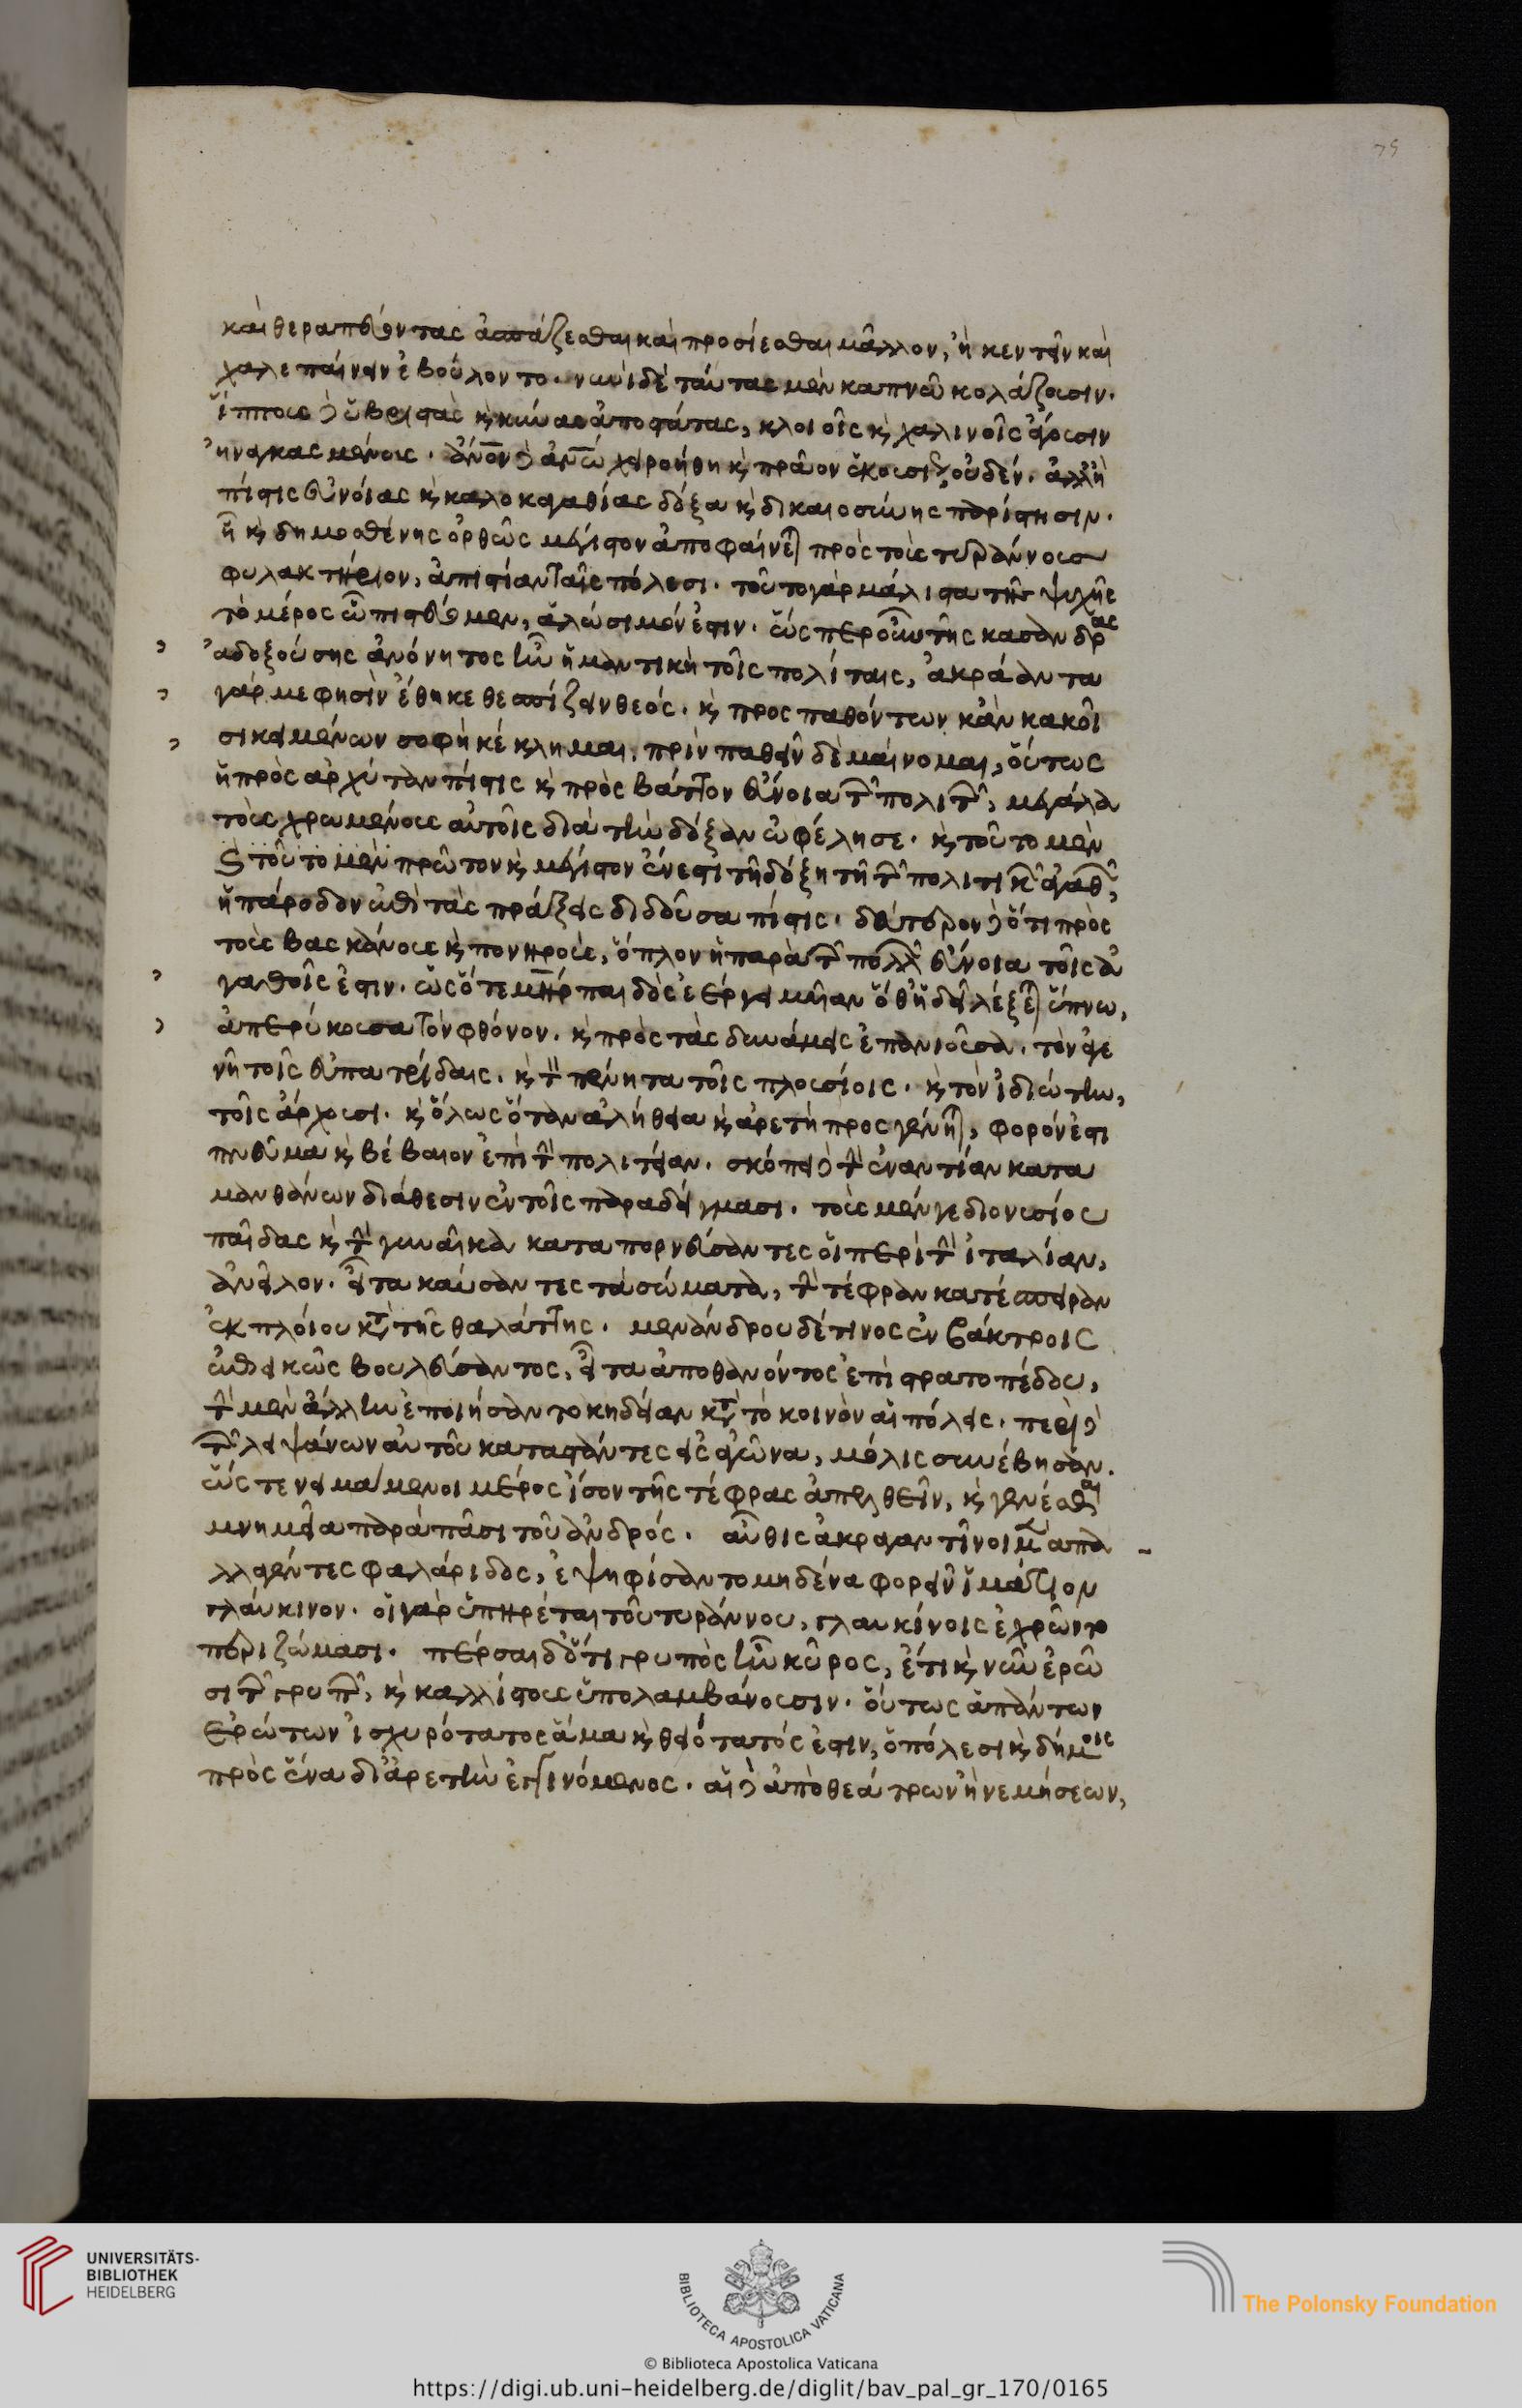 75
καὶ θεραπεύοντας ἀσπάζεσθαι καὶ προσίεσθαι μᾶλλον, ἢ κεντεῖν καὶ
χαλεπαίνειν ἐβούλοντο. νυνὶ δὲ ταύτας μὲν καπνῶ κολάζουσιν.
ἵππους δὲ ὑβριστὰς κ κύνας ἀποστάτας, κλοιοῖς κ χαλινοῖς ἄγουσιν
ἠναγκασμένους. ἀνον δὲ ἀνω χειροήθη κ πρᾶον ἑκουσίως οὐδέν. ἀλλ' ἢ
πίστις εὐνοίας κ καλοκαγαθίας δόξα κ δικαιοσύνης παρίστησιν.
ἧ κ δημοσθένης ὀρθῶς μέγιστον ἀποφαίνεται πρὸς τοὺς τυράννους
φυλακτήριον, ἀπιστίαν ταῖς πόλεσι. τοῦτο γὰρ μάλιστα τῆς ψυχῆς
τὸ μέρος ὧ πιστεύομεν, ἁλώσιμόν ἐστιν. ὥσπερ οὖν τῆς κασάνδρας
ἀδοξούσης ἀνόνητος ἦν ἡ μαντικὴ τοῖς πολίταις, ἄκραντα
γάρ με φησὶν ἔθηκε θεσπίζειν θεός. κ προς παθόντων κἀν κακοῖ
σι κειμένων σοφὴ κέκλημαι, πρὶν παθεῖν δὲ μαίνομαι, οὕτως
ἡ πρὸς ἀρχύταν πίστις κ πρὸς βάττον εὔνοια τῶν πολιτῶν, μεγάλα
τοὺς χρωμένους αὐτοῖς διὰ τὴν δόξαν ὠφέλησε. κ τοῦτο μὲν
κ τοῦτο μὲν πρῶτον κ μέγιστον ἔνεστι τῆ δόξη τῆ τῶν πολιτικῶν ἀγαθόν,
ἡ πάροδον ἐπὶ τὰς πράξεις διδοῦσα πίστις. δεύτερον δὲ ὅτι πρὸς
τοὺς βασκάνους κ πονηρούς, ὅπλον ἡ παρὰ τῶν πολλῶν εὔνοια τοῖς ἀ
γαθοῖς ἐστιν. ὡς ὅτε μηρ παιδὸς ἐέργει μυῖαν ὅθ' ἡδεῖ λέξεται ὕπνω,
ἀπερύκουσα τὸν φθόνον. κ πρὸς τὰς δυνάμεις ἐπανισοῦσα. τὸν ἀγε
νῆ τοῖς εὐπατρίδαις. κ τὸν πένητα τοῖς πλουσίοις. κ τὸν ἰδιώτην,
τοῖς ἄρχουσι. κ ὅλως ὅταν ἀλήθεια κ ἀρετὴ προσγένηται, φορόν ἐστι
πνεῦμα κ βέβαιον ἐπὶ τὴν πολιτείαν. σκόπει δὲ τὴν ἐναντίαν κατα
μανθάνων διάθεσιν ἐν τοῖς παραδείγμασι. τοὺς μέν γε διονυσίου
παῖδας κ τὴν γυναῖκα καταπορνεύσαντες οἱ περὶ τὴν ἰταλίαν,
ἀνεῖλον. εἶτα καύσαντες τὰ σώματα, τὴν τέφραν κατέσπειραν
ἐκ πλοίου κατὰ τῆς θαλάττης. μενάνδρου δέ τινος ἐν βάκτροις
ἐπιεικῶς βουλεύσαντος, εἶτα ἀποθανόντος ἐπὶ στρατοπέδου,
τὴν μὲν ἄλλην ἐποιήσαντο κηδείαν κατὰ τὸ κοινὸν αἱ πόλεις. περὶ δὲ
τῶν λειψάνων αὐτοῦ καταστάντες εἰς ἀγῶνα, μόλις συνέβησαν.
ὥστε νειμάμενοι μέρος ἴσον τῆς τέφρας ἀπελθεῖν, κ γενέσθαι
μνημεῖα παρὰ πᾶσι τοῦ ἀνδρός. αὖθις ἀκραγαντῖνοι μὲν ἀπα
λλαγέντες φαλάριδος, ἐψηφίσαντο μηδένα φορεῖν ἱμάτιον
γλαύκινον. οἱ γὰρ ὑπηρέται τοῦ τυράννου, γλαυκίνοις ἐχρῶντο
περιζώμασι. πέρσαι δ' ὅτι γρυπὸς ἦν κῦρος, ἔτι κ νῦν ἐρῶ
σι τῶν γρυπῶν, κ καλλίστους ὑπολαμβάνουσιν. οὕτως ἁπάντων
ἐρώτων ἰσχυρότατος ἅμα κ θειότατός ἐστιν, ὁ πόλεσι κ δήμοις
πρὸς ἕνα δι' ἀρετὴν ἐγγινόμενος. αἱ δὲ ἀπὸ θεάτρων ἢ νεμήσεων,
UNIVERSITÄTS-
BIBLIOTHEK
HEIDELBERG
BIBLIOTECA APOSTOLICA VATICANA
The Polonsky Foundation
© Biblioteca Apostolica Vaticana
https://digi.ub.uni-heidelberg.de/diglit/bav_pal_gr_170/0165